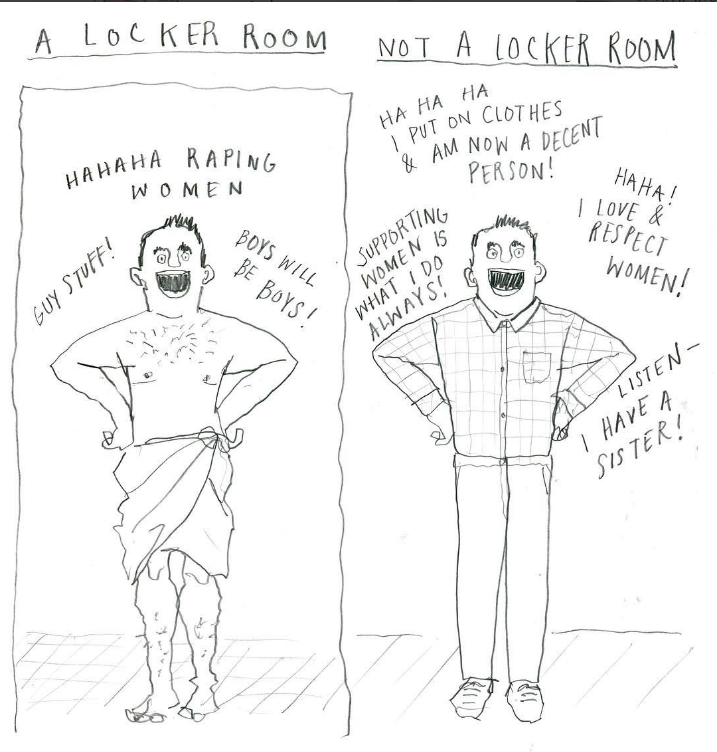 A LOCKER ROOM
HAHAHA RAPING
WOMEN
GUY STUFF!
BOYS WILL
BE BOYS!
NOT A LOCKER ROOM
HA HA HA
I PUT ON CLOTHES
& AM NOW A DECENT
PERSON!
SUPPORTING
WOMEN IS
WHAT I DO
ALWAYS!
HAHA!
I LOVE &
RESPECT
WOMEN!
LISTEN—
I HAVE A
SISTER!